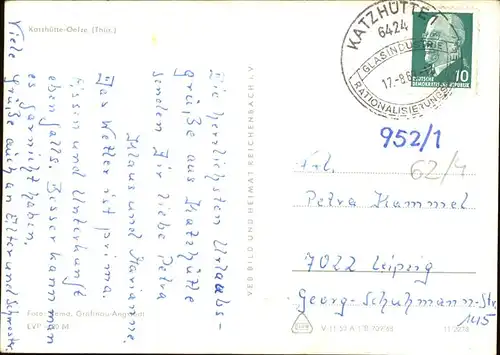 Katzhütte-Oelze (Thür.)
Die herzlichsten Urlaubs-
grüße aus Katzhütte
senden Dir liebe Petra
Klaus und Marianne.
Das Wetter ist prima.
Essen und Unterkunft
ebenfalls. Besser kann man
es garnicht haben.
Viele Grüße auch an Eltern und Schwester
Foto: Gräfinau-Angstedt
EVP
VEB BILD UND HEIMAT REICHENBACH I. V.
KATZHÜTTE
6424
GLASINDUSTRIE
RATIONALISIERUNGS
17.-8.6
10
DEUTSCHE
DEMOKRATISCHE REPUBLIK
952/1
62/4
Frl.
Petra Hammel
7022 Leipzig
Georg-Schuhmann-Str.
145